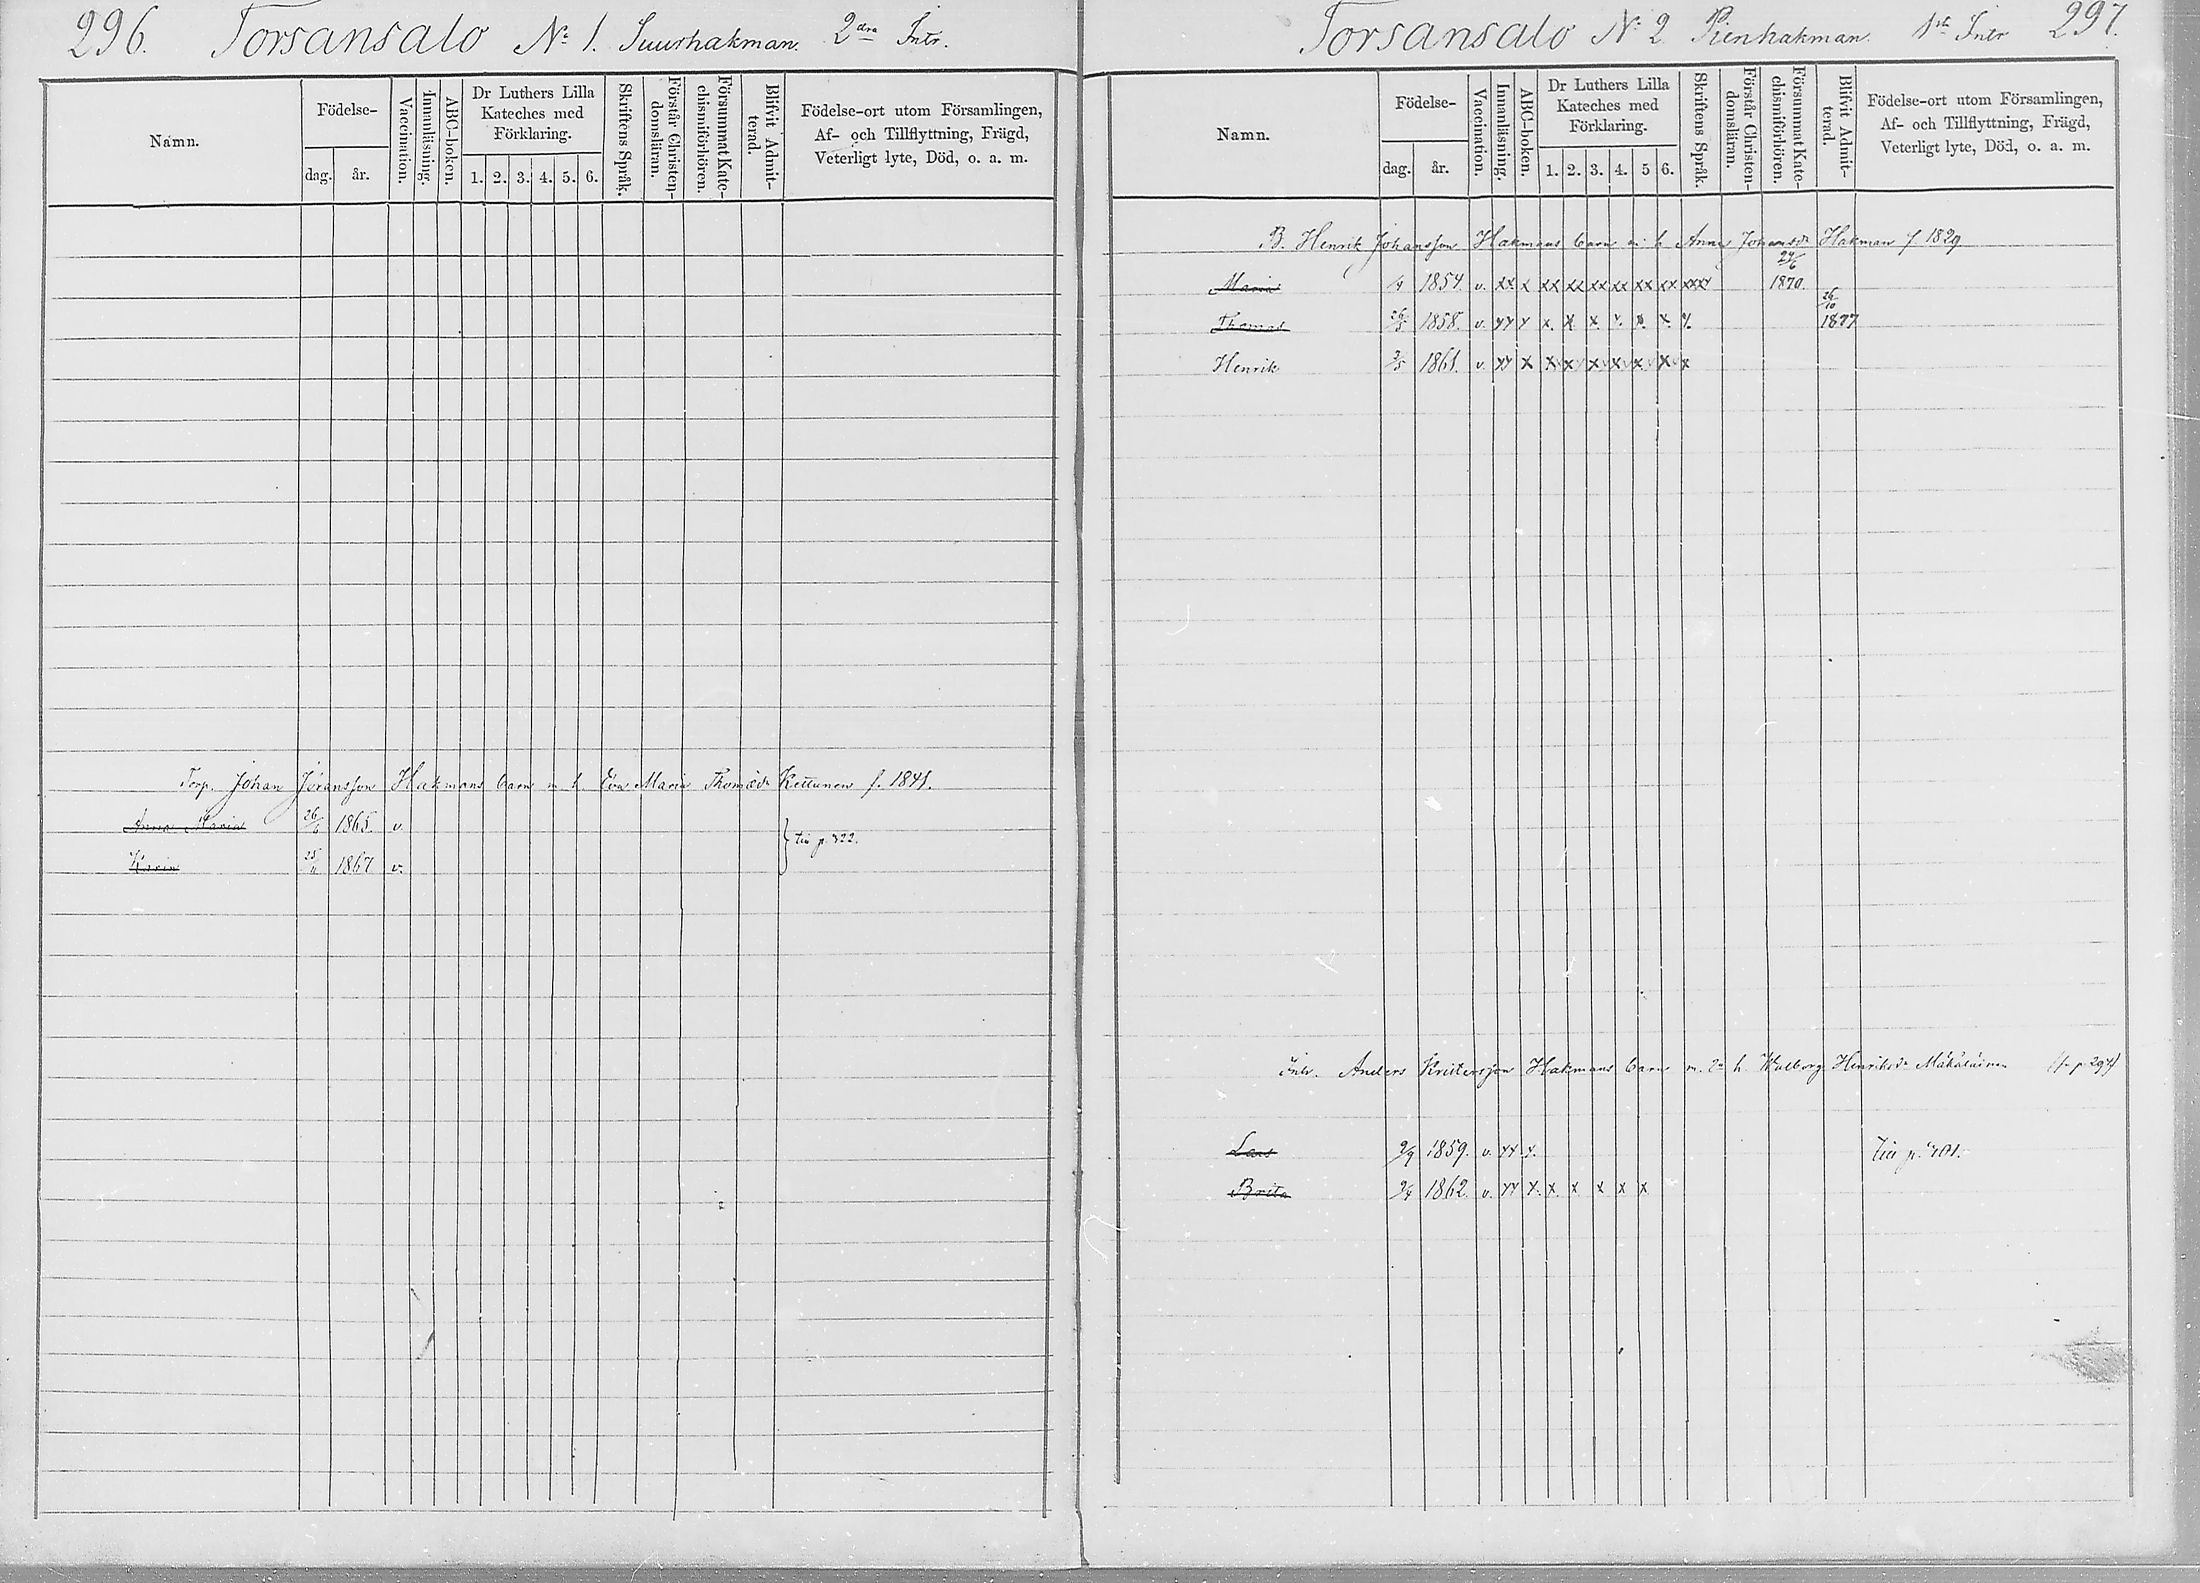 296. Torsansalo No 1. Suurhakman. 2dra Intr.
Namn.
Födelse-
dag. år.
Vaccination.
Innanläsning.
ABC-boken.
Dr Luthers Lilla
Kateches med
Förklaring.
1. 2. 3. 4. 5. 6.
Skriftens Språk.
Förstår Christen-
domsläran.
Försummat Kate-
chismiförhören.
Blifvit Admit-
terad.
Födelse-ort utom Församlingen,
Af- och Tillflyttning, Frägd,
Veterligt lyte, Död, o. a. m.
Torp. Johan Göransson Hakmans barn m. h. Eva Maria Thomæd:r Kettunen f. 1841.
Anna Maria 1865. v.
Karin 1867 v.
Torsansalo No 2 Pienhakman. 1sta Intr 297.
Namn.
Födelse-
dag. år.
Vaccination.
Innanläsning.
ABC-boken.
Dr Luthers Lilla
Kateches med
Förklaring.
1. 2. 3. 4. 5 6.
Skriftens Språk.
Förstår Christen-
domsläran.
Försummat Kate-
chismiförhören.
Blifvit Admit-
terad.
Födelse-ort utom Församlingen,
Af- och Tillflyttning, Frägd,
Veterligt lyte, Död, o. a. m.
B. Henrik Johansson Hakmans barn m. h. Anna Johansd:r Hakman f 1829
Maria 1854. v. xx x xx xx xx xx xx xx xxx 24/6 1870.
Thomas 26/5 1858. v. xx x x. x x. x. x. x. x. 26/10 1877
Henrik 1861. v. xx x x x x x x x x
Inh. Anders Kristersson Hakmans barn m. 2a h. Walborg Henriksd:r Mähäläinen
Lars 1859. v. xx x. till p. 401.
Brita 1862. v. xx x. x. x x x x